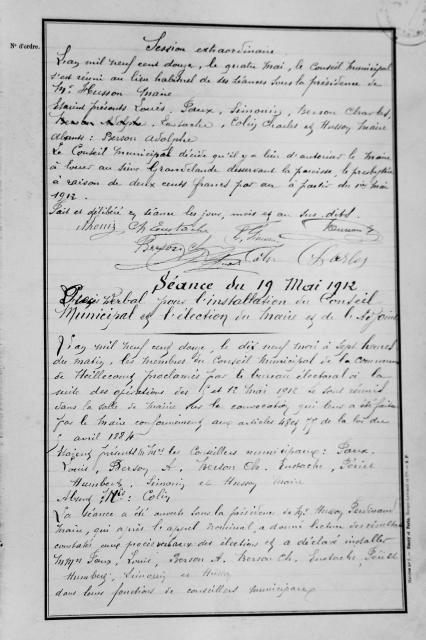 N° d'ordre.
Session extraordinaire
L'an mil neuf cent douze, le quatre mai, le Conseil Municipal
s'est réuni au lieu habituel de ses séances sous la présidence de
Mr Husson Maire
Etaient présents Louis, Faux, Simonin, Berson Charles,
Berson Adolphe, Eustache, Colin Charles et Husson Maire
absents : Berson Adolphe
Le Conseil Municipal décide qu'il y a lieu d'autoriser le Maire
à louer au sieur desservant la paroisse, le presbytère
à raison de deux cents francs par an à partir du 1er mai
1912.
Fait et délibéré en séance les jour, mois et an sus-dits.
Eustache
Berson
Colin Charles
Séance du 19 Mai 1912
Procès Verbal pour l'installation du Conseil
Municipal et l'élection du Maire et de l'Adjoint
L'an mil neuf cent douze, le dix neuf mai à sept heures
du matin, les membres du Conseil Municipal de la Commune
de proclamés par le bureau électoral à la
suite des opérations des 5 et 12 Mai 1912 se sont réunis
dans la salle de Mairie sur la convocation qui leur a été faite
par le Maire conformément aux articles 48 et 77 de la loi du
5 avril 1884
Etaient présents Mrs les Conseillers municipaux : Faux
Louis, Berson A, Berson Ch. Eustache,
Humbert, Simonin et Husson maire
Absent : Mr : Colin
La séance a été ouverte sous la présidence de Mr Husson Ferdinand
Maire, qui après l'appel nominal, a donné lecture des résultats
constatés aux procès verbaux des élections et a déclaré installer
MMrs Faux, Louis, Berson A. Berson Ch. Eustache,
Humbert, Simonin et Husson
dans leurs fonctions de conseillers municipaux